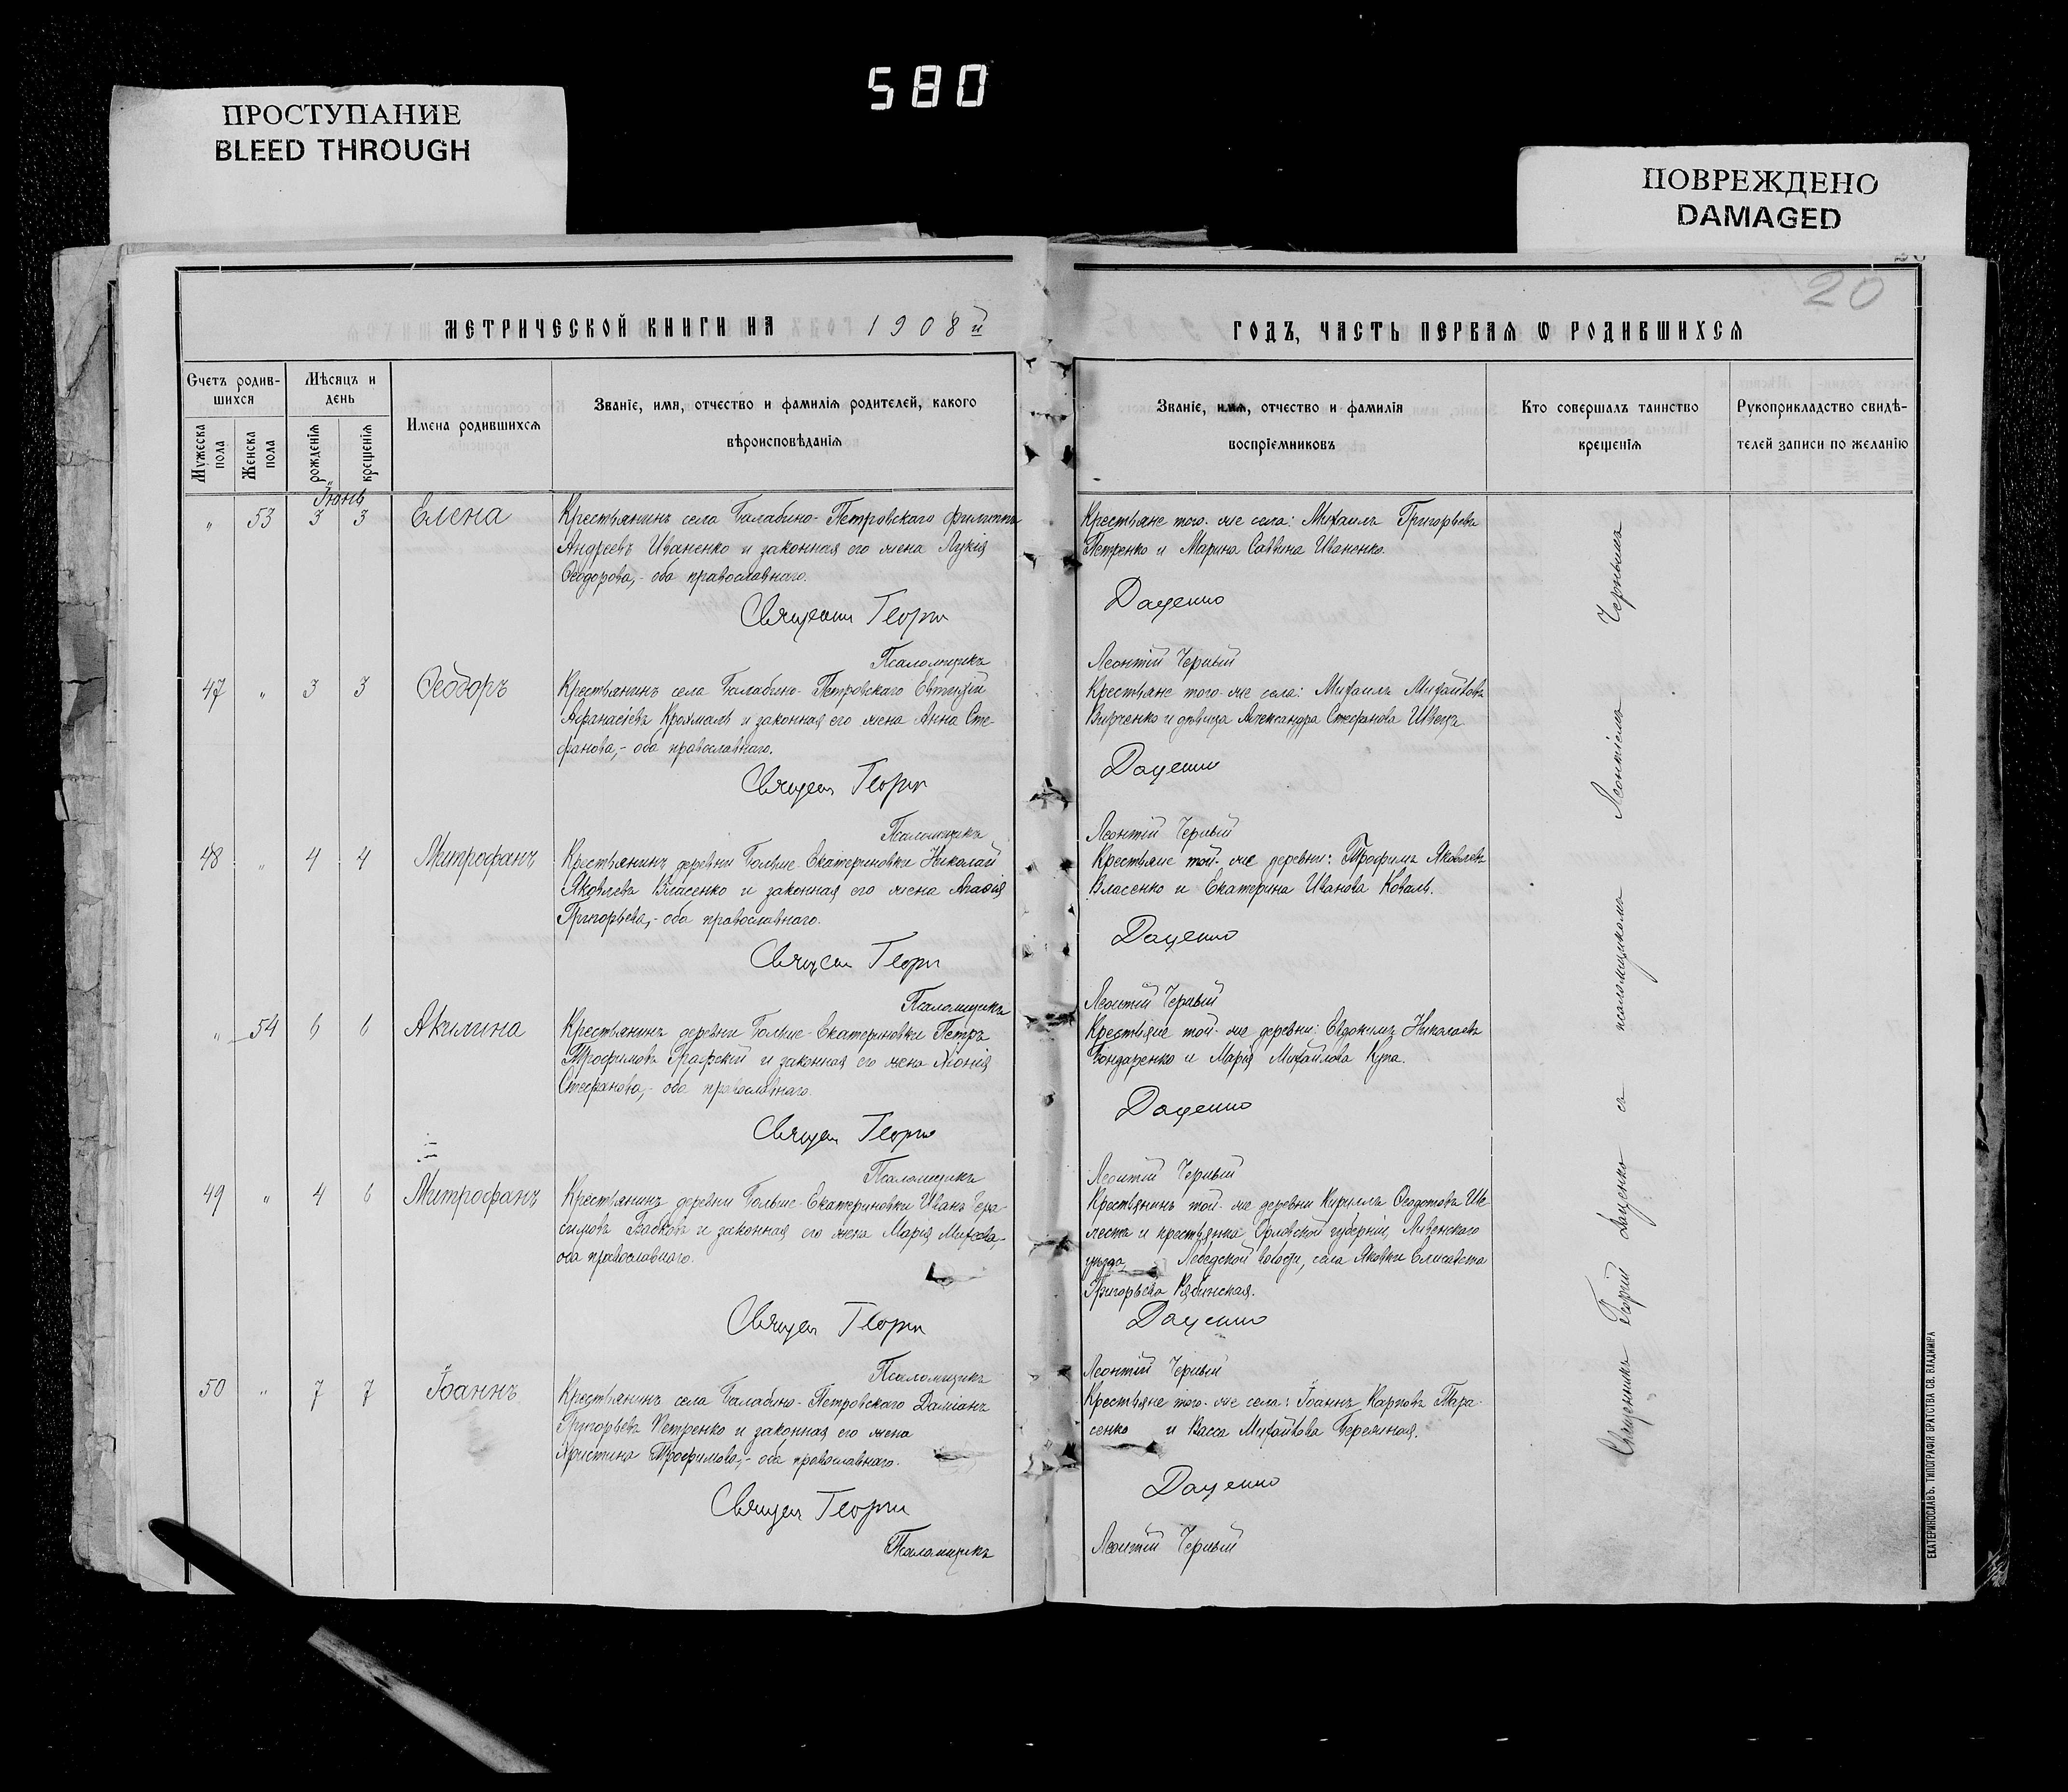 580
ПРОСТУПАНИЕ
BLEED THROUGH
ПОВРЕЖДЕНО
DAMAGED
20
МЕТРИЧЕСКОЙ КНИГИ НА 1908й
ГОДЪ, ЧАСТЬ ПЕРВАЯ Ѡ РОДИВШИХСЯ
Счетъ родив-
шихся
Мужеска пола
Женска пола
Мѣсяцъ и
день
рожденія
крещенія
Имена родившихся
Званіе, имя, отчество и фамилія родителей, какого
вѣроисповѣданія
Званіе, имя, отчество и фамилія
воспріемниковъ
Кто совершалъ таинство
крещенія
Рукоприкладство свидѣ-
телей записи по желанію
Іюнь
" 53 3 3 Елена
Крестьянинъ села Балабино-Петровскаго Филиппъ
Андреевъ Иваненко и законная его жена Лукія
Ѳеодорова,- оба православнаго.
Крестьяне того-же села: Михаилъ Григорьевъ
Петренко и Марина Саввина Иваненко.
Священни Георги
Даценко
Псаломщикъ
Леонтій Черный
47 " 3 3 Ѳеодоръ
Крестьянинъ села Балабино-Петровскаго Евтихій
Афанасіевъ Крохмаль и законная его жена Анна Сте
фанова,- оба православнаго.
Крестьяне того-же села: Михаилъ Михайловъ
и дѣвица Александра Стефанова Швецъ
Священ Георги
Даценко
Псаломщикъ
Леонтій Черный
48 " 4 4 Митрофанъ
Крестьянинъ деревни Больше-Екатериновки Николай
Яковлевъ Власенко и законная его жена Агаѳія
Григорьева,- оба православнаго.
Крестьяне той-же деревни: Трофимъ Яковлевъ
Власенко и Екатерина Иванова Коваль.
Священ Георги
Даценко
Псаломщикъ
Леонтій Черный
" 54 6 6 Акилина
Крестьянинъ деревни Больше-Екатериновки Петръ
Трофимовъ Графскій и законная его жена Хіонія
Стефанова,- оба православнаго.
Крестьяне той-же деревни: Евдокимъ Николаевъ
Бондаренко и Марія Михайлова Купа.
Священ Георги
Даценко
Псаломщикъ
Леонтій Черный
49 " 4 6 Митрофанъ
Крестьянинъ деревни Больше-Екатериновки Иванъ Гера
симовъ и законная его жена Марія
оба православнаго.
Крестьянинъ той-же деревни Кириллъ Ѳеодотовъ Ше
лестъ и крестьянка Орловской губерніи, Ливенскаго
уѣзда, волости, села Елисавета
Григорьева Рябинская.
Священ Георги
Даценко
Псаломщикъ
Леонтій Черный
50 " 7 7 Іоаннъ
Крестьянинъ села Балабино-Петровскаго Даміанъ
Григорьевъ Петренко и законная его жена
Христина Трофимова,- оба православнаго.
Крестьяне того-же села: Іоаннъ Карповъ Тара
сенко и Васса Михайлова
Священ Георги
Даценко
Псаломщикъ
Леонтій Черный
Священникъ Георгій Даценко съ псаломщикомъ Леонтіемъ Чернымъ
ЕКАТЕРИНОСЛАВЪ. ТИПОГРАФІЯ БРАТСТВА СВ. ВЛАДИМІРА